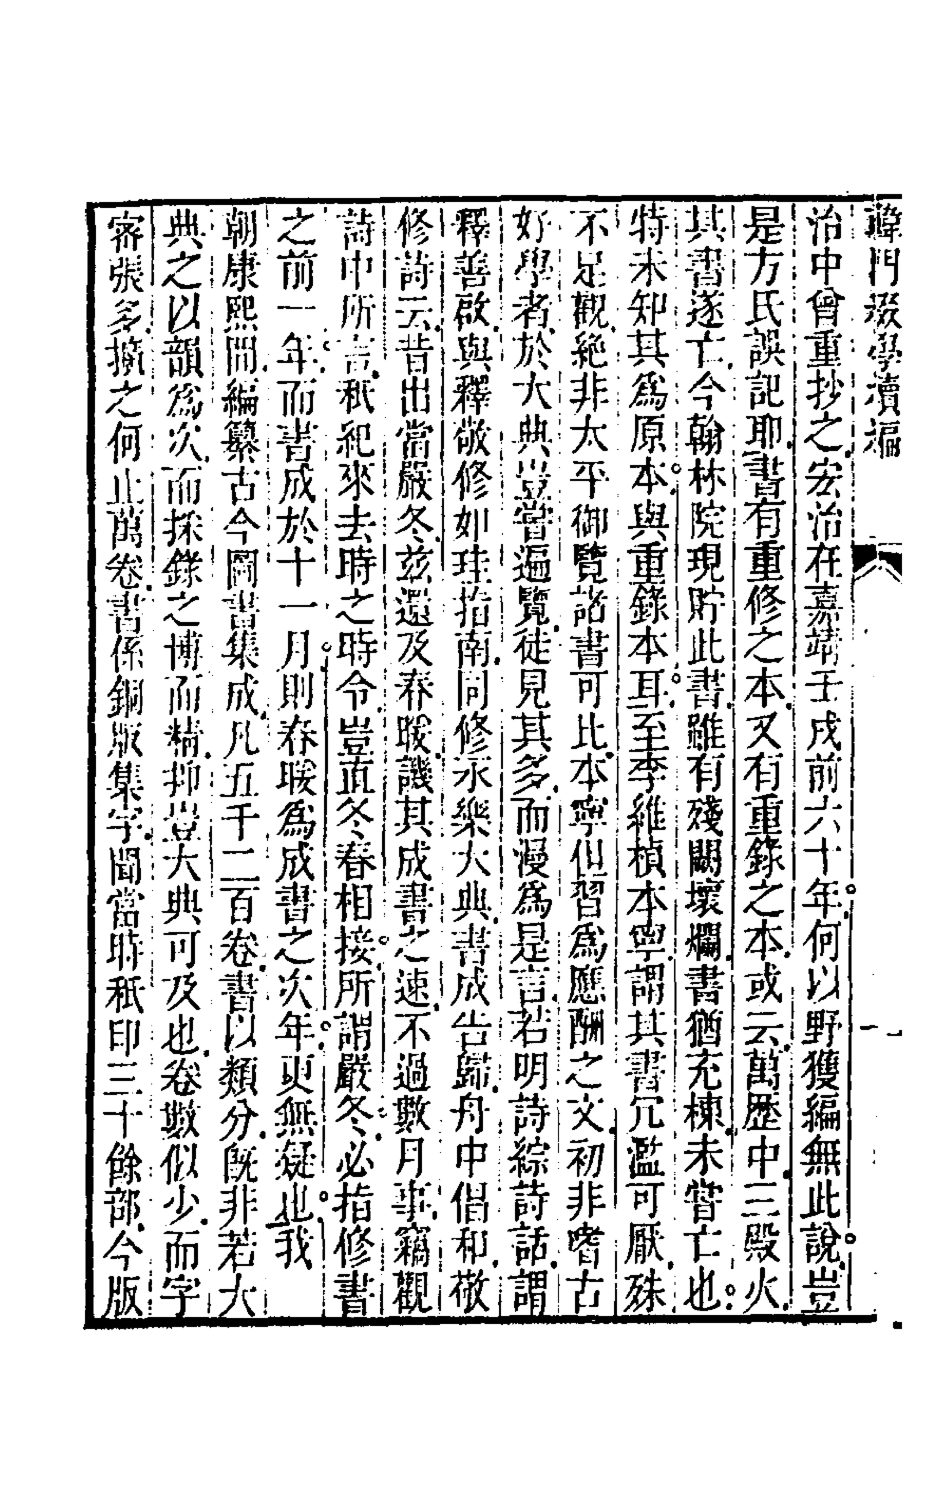 韡門綴學續編
治中曾重抄之宏治在嘉靖壬戌前六十年何以野獲編無此說豈
是方氏誤記耶書有重修之本又有重錄之本或云萬歷中三殿火
其書遂亡今翰林院現貯此書雖有殘闕壞爛書猶充棟未嘗亡也
特未知其爲原本與重錄本耳至李維楨本寧謂其書冗濫可厭殊
不足觀絶非太平御覽諸書可比本寧但習爲應酬之文初非嗜古
好學者於大典豈嘗遍覽徒見其多而漫爲是言若明詩綜詩話謂
釋善啟與釋敬修如珪指南同修永樂大典書成告歸舟中倡和敬
修詩云昔出當嚴冬兹還及春暖譏其成書之速不過數月事竊觀
詩中所言秪紀來去時之時令豈直冬春相接所謂嚴冬必指修書
之前一年而書成於十一月則春暖爲成書之次年更無疑也我
朝康熙間編纂古今圖書集成凡五千二百卷書以類分旣非若大
典之以韻爲次而採錄之博而精抑豈大典可及也卷數似少而字
密張多擴之何止萬卷書係銅版集字聞當時秪印三十餘部今版
一